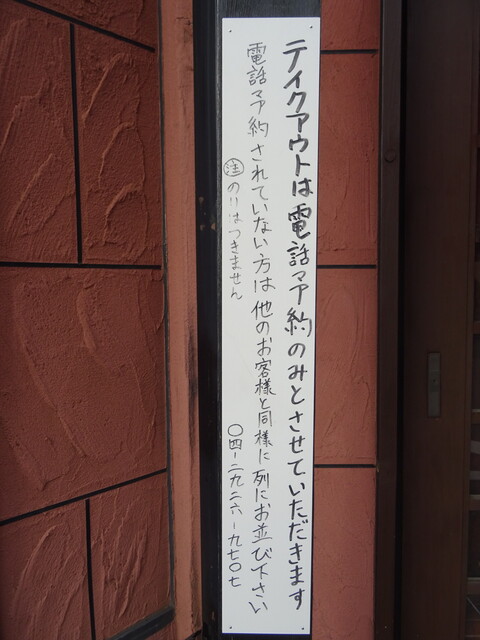 テイクアウトは電話予約のみとさせていただきます
電話予約されていない方は他のお客様と同様に列にお並び下さい
注 のりはつきません
〇四-二九二六-九七〇七